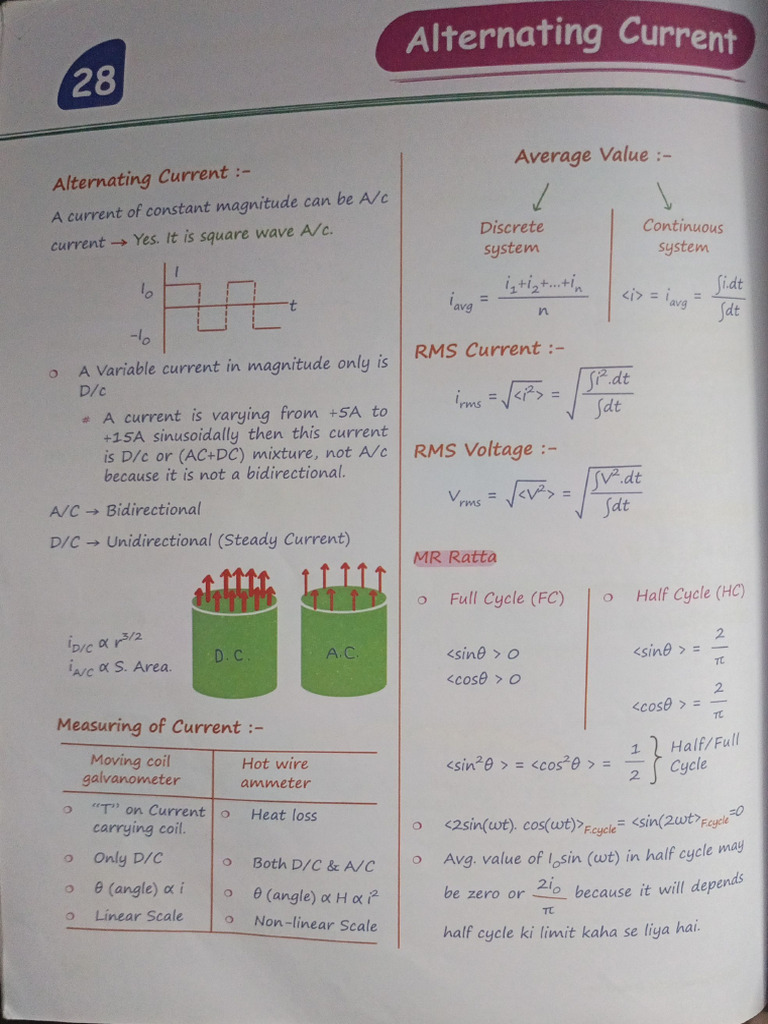 28
Alternating Current
Alternating Current :-
A current of constant magnitude can be A/c
current → Yes. It is square wave A/c.
I
I₀
t
-I₀
○ A Variable current in magnitude only is
D/c
* A current is varying from +5A to
+15A sinusoidally then this current
is D/c or (AC+DC) mixture, not A/c
because it is not a bidirectional.
A/C → Bidirectional
D/C → Unidirectional (Steady Current)
i_D/C ∝ r^3/2
i_A/C ∝ S. Area.
D.C.
A.C.
Measuring of Current :-
Moving coil
galvanometer
Hot wire
ammeter
○ "T" on Current
carrying coil.
○ Heat loss
○ Only D/C
○ Both D/C & A/C
○ θ (angle) α i
○ θ (angle) α H α i²
○ Linear Scale
○ Non-linear Scale
Average Value :-
Discrete
system
Continuous
system
i_avg = (i₁+i₂+...+iₙ)/n
<i> = i_avg = ∫i.dt/∫dt
RMS Current :-
i_rms = √<i²> = √(∫i².dt/∫dt)
RMS Voltage :-
V_rms = √<V²> = √(∫V².dt/∫dt)
MR Ratta
○ Full Cycle (FC)
○ Half Cycle (HC)
<sinθ > 0
<cosθ > 0
<sinθ > = 2/π
<cosθ > = 2/π
<sin²θ > = <cos²θ > = 1/2 } Half/Full
Cycle
○ <2sin(ωt). cos(ωt)>_F.cycle = <sin(2ωt>_F.cycle =0
○ Avg. value of I₀sin (ωt) in half cycle may
be zero or 2i₀/π because it will depends
half cycle ki limit kaha se liya hai.